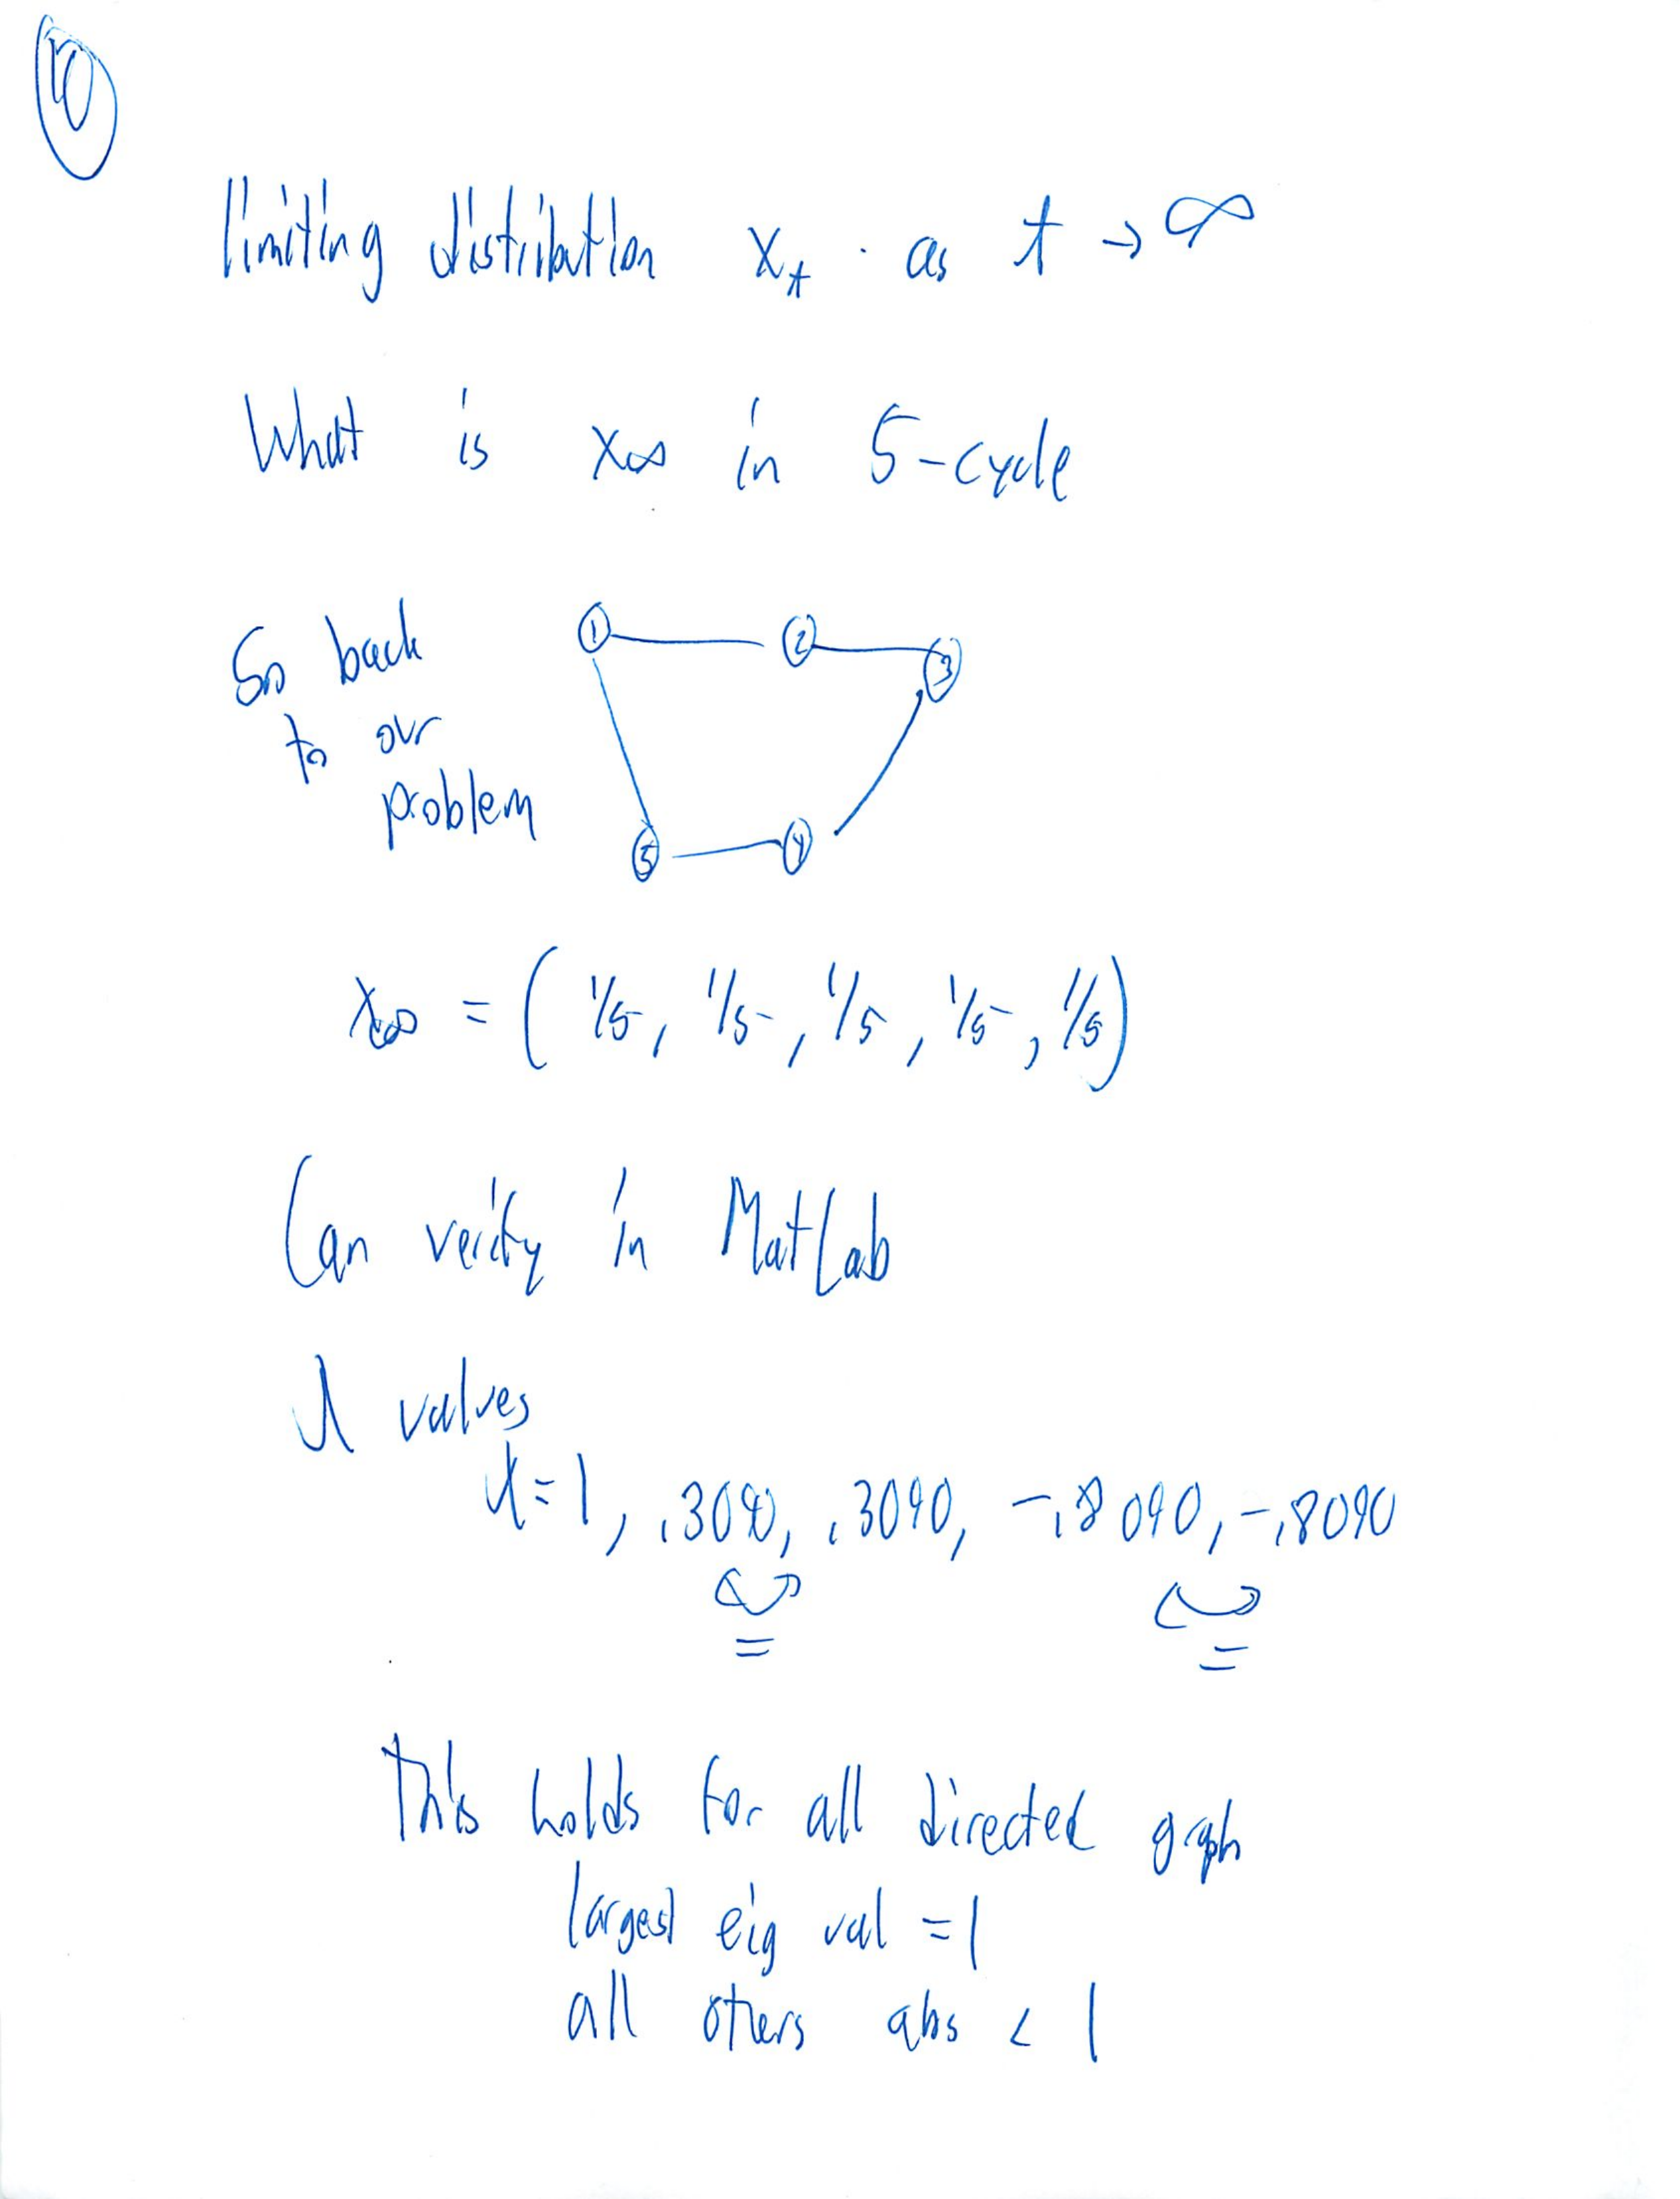 10
limiting distribution x_t as t → ∞
What is x∞ in 5-cycle
So back
to our
problem
1 2 3
5 4
x∞ = ( 1/5, 1/5, 1/5, 1/5, 1/5)
Can verify in MatLab
λ values
λ=1, .3090, .3090, -.8090, -.8090
= =
This holds for all directed graph
largest eig val = 1
all others abs < 1